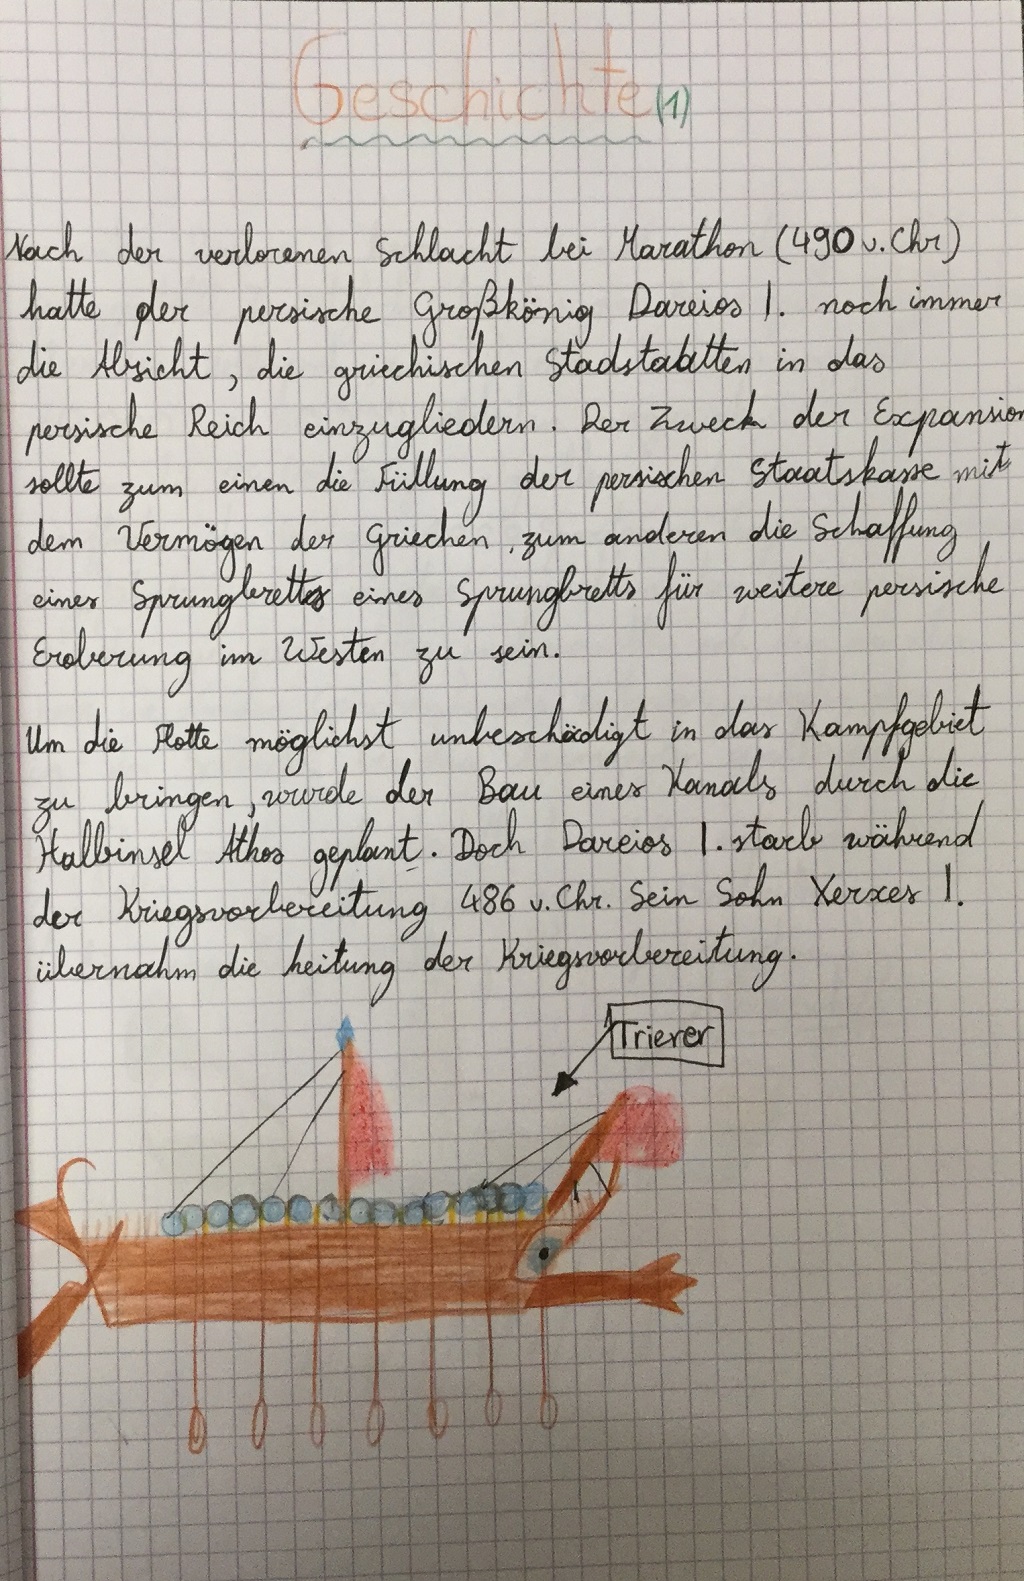 Geschichte (1)
Nach der verlorenen Schlacht bei Marathon (490 v. Chr)
hatte der persische Großkönig Dareios I. noch immer
die Absicht, die griechischen Stadstaatten in das
persische Reich einzugliedern. Der Zweck der Expansion
sollte zum einen die Füllung der persischen Staatskasse mit
dem Vermögen der Griechen, zum anderen die Schaffung
eines Sprungbretts eines Sprungbretts für weitere persische
Eroberung im Westen zu sein.
Um die Flotte möglichst unbeschädigt in das Kampfgebiet
zu bringen, wurde der Bau eines Kanals durch die
Halbinsel Athos geplant. Doch Dareios I. starb während
der Kriegsvorbereitung 486 v. Chr. Sein Sohn Xerxes I.
übernahm die Leitung der Kriegsvorbereitung.
Trierer